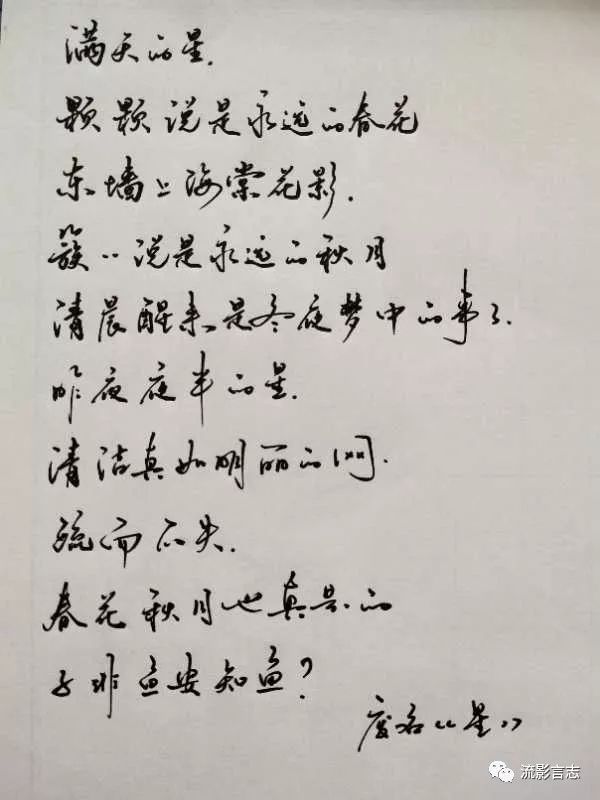 满天的星.
颗颗说是永远的春花
东墙上海棠花影.
簇〃说是永远的秋月
清晨醒来是冬夜梦中的事了.
昨夜夜半的星.
清洁真如明丽的网.
疏而不失.
春花秋月也真是的
子非鱼安知鱼？
废名“星”
流影言志